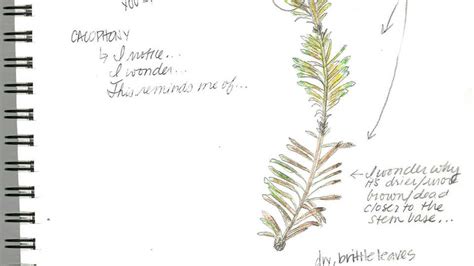 CACOPHONY
↳ I notice...
I wonder...
This reminds me of...
← I wonder why
it's drier/more
brown/dead
closer to the
stem base...
dry, brittle leaves